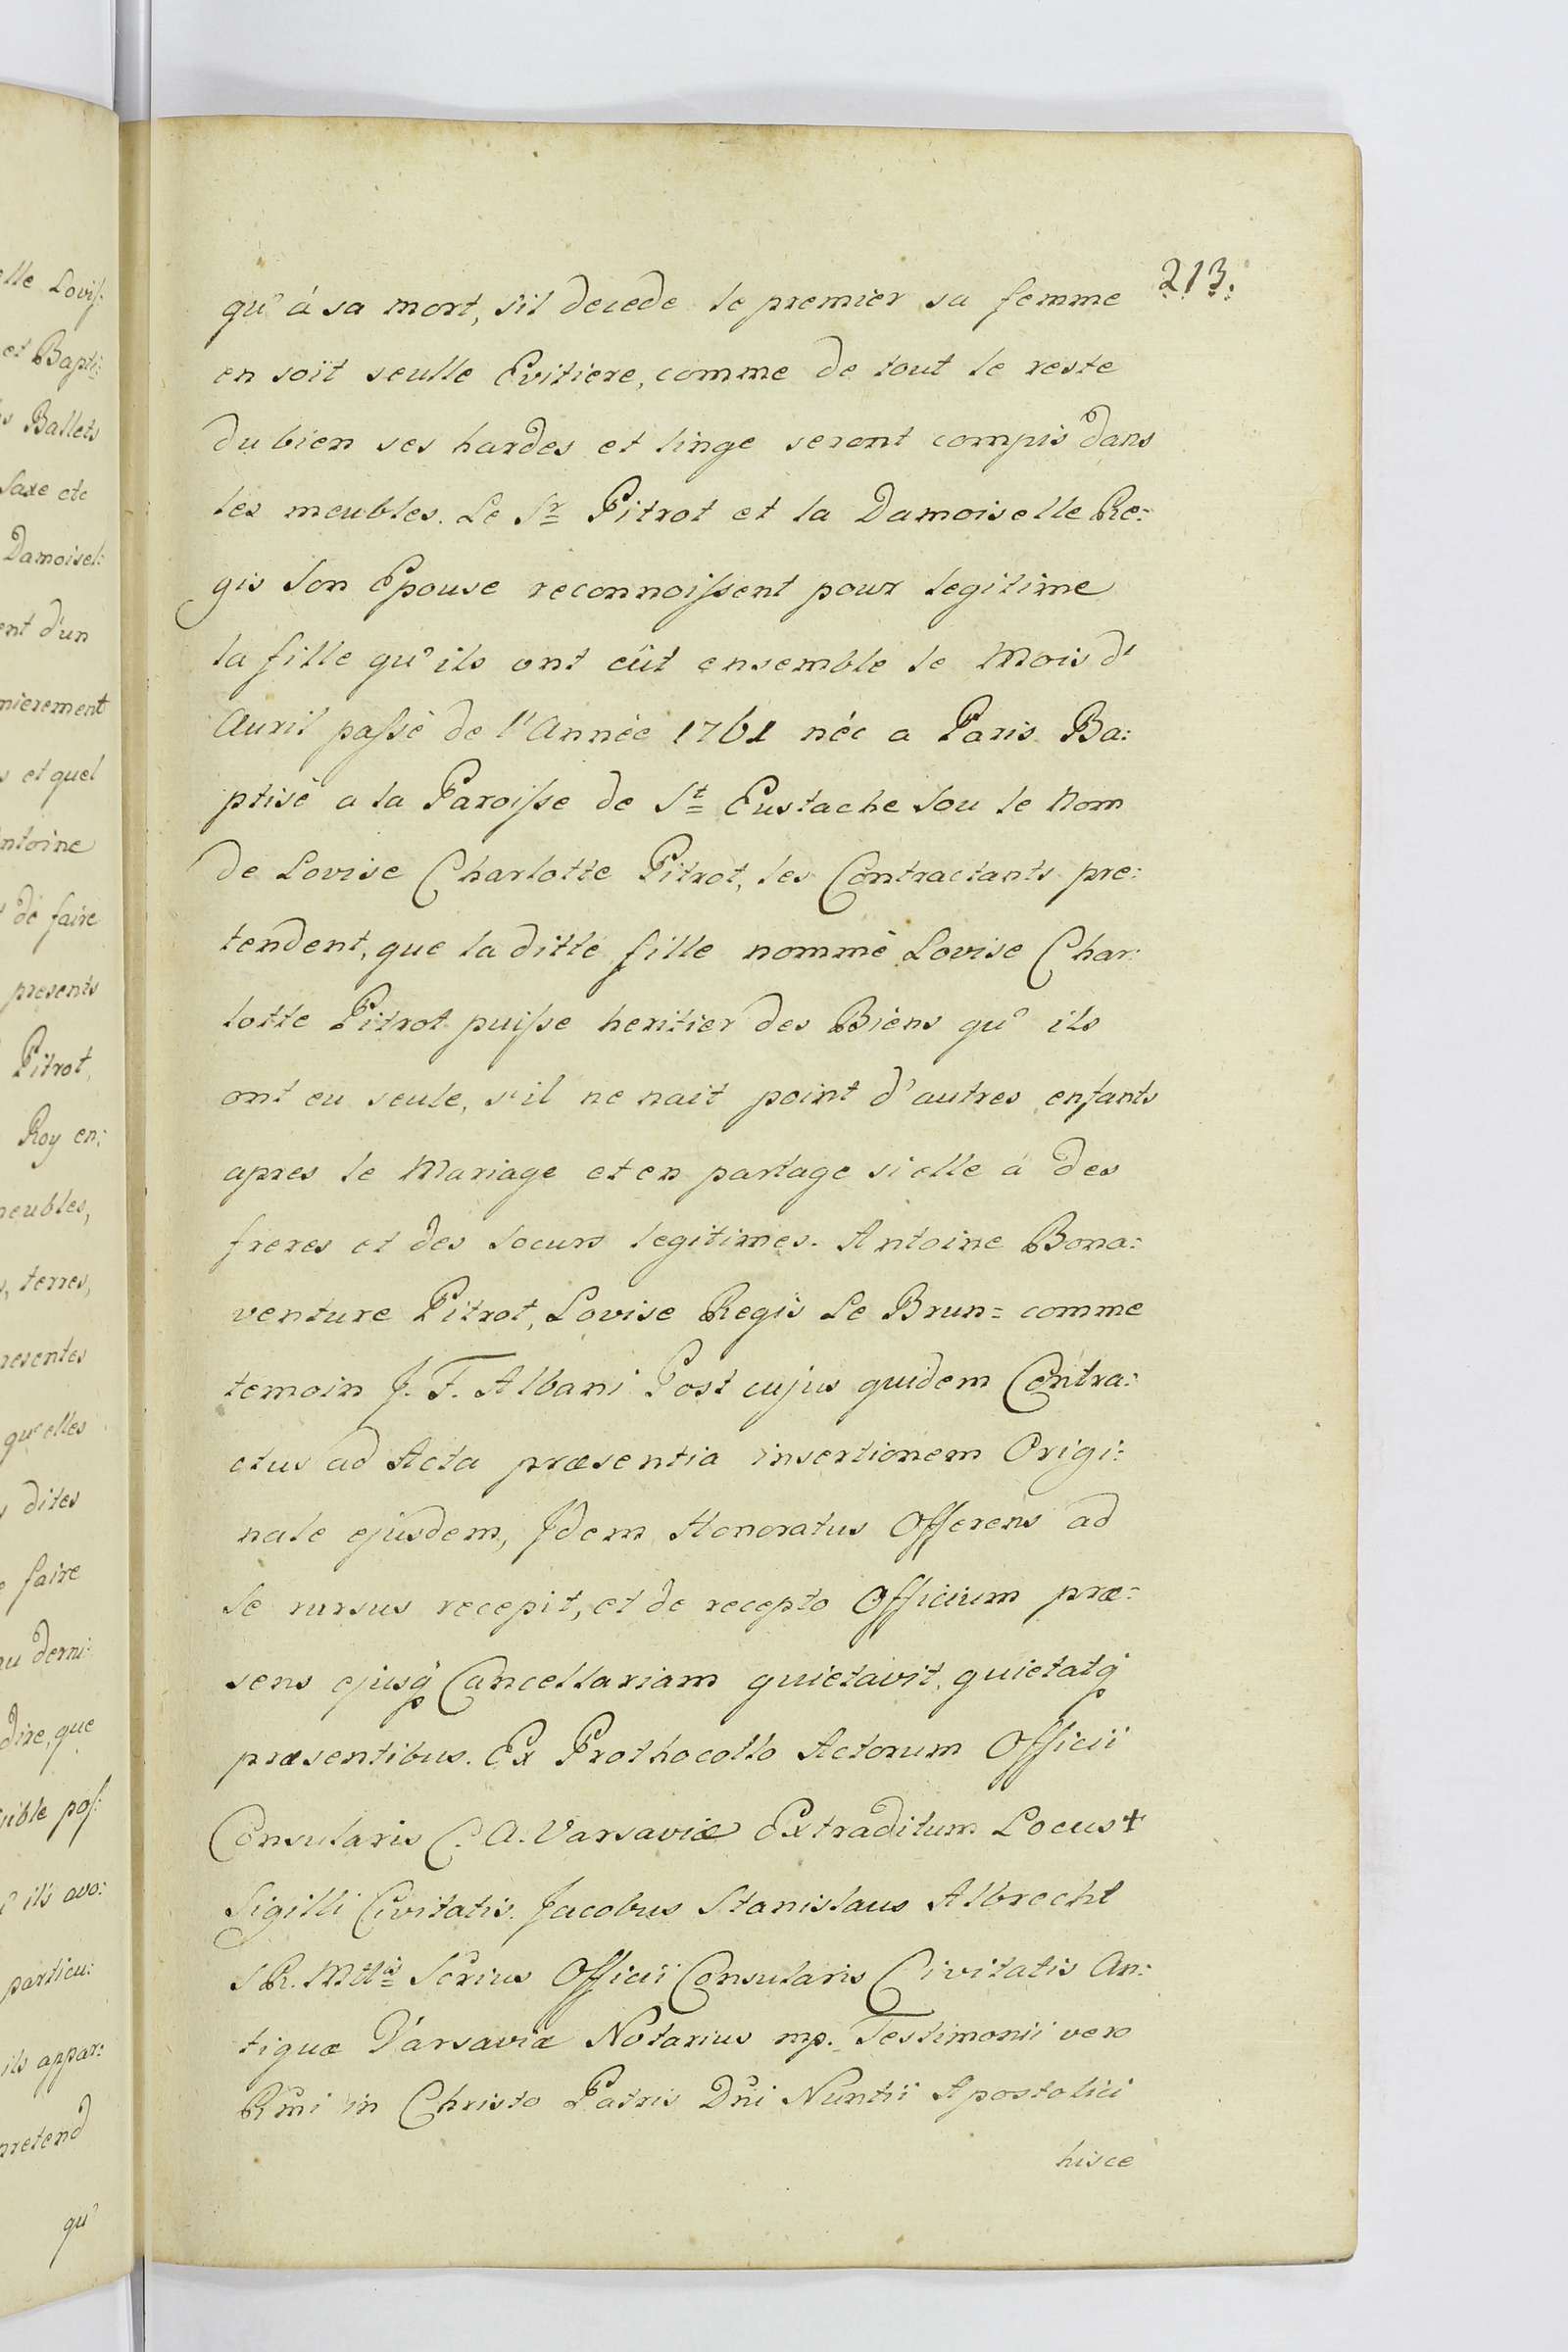 213.
qu' á sa mort, s'il decede le premier sa femme
en soit seulle Evitiere, comme de tout le reste
du bien ses hardes et linge seront compis dans
les meubles. Le Sr Pitrot et la Damoiselle Re:
gis son Epouse reconnoissent pour legitime
la fille qu' ils ont eût ensemble le Mois d'
Auril passè de l'Annèe 1761 nèe a Paris Ba:
ptisè a la Paroisse de St Eustache sou le Nom
de Lovise Charlotte Pitrot, les Contractants pre:
tendent, que la ditte fille nommè Lovise Char:
lotte Pitrot puisse heritier des Biens qu' ils
ont eu seule, s'il ne nait point d'autres enfants
apres le Mariage et en partage si elle á des
freres et des soeurs legitimes. Antoine Bona:
venture Pitrot, Lovise Regis Le Brun = comme
temoin J. F. Albani Post cujus quidem Contra:
ctus ad Acta præsentia insertionem Origi:
nale ejusdem, Idem Honoratus Offerens ad
se rursus recepit, et de recepto Officium præ:
sens ejusq Cancellariam quietavit, quietatq
præsentibus. Ex Prothocollo Actorum Officii
Consularis C. A. Varsaviæ Extraditum Locus +
Sigilli Civitatis. Jacobus Stanislaus Albrecht
S R. Mttis Scrius Officii Consularis Civitatis An:
tiquæ Varsaviæ Notarius mp. Testimonii vero
Rmi in Christo Patris Dni Nuntii Apostolici
hisce
elle Lovis:
et Bapti:
Ballets
Saxe etc
Damoisel:
ent d'un
mierement
et quel
ntoine
de faire
presents
Pitrot,
Roy en:
meubles,
terres,
resentes
qu'elles
dites
faire
au derni:
dire, que
sible pos:
ils avo:
particu:
ils appar:
pretend
qu'